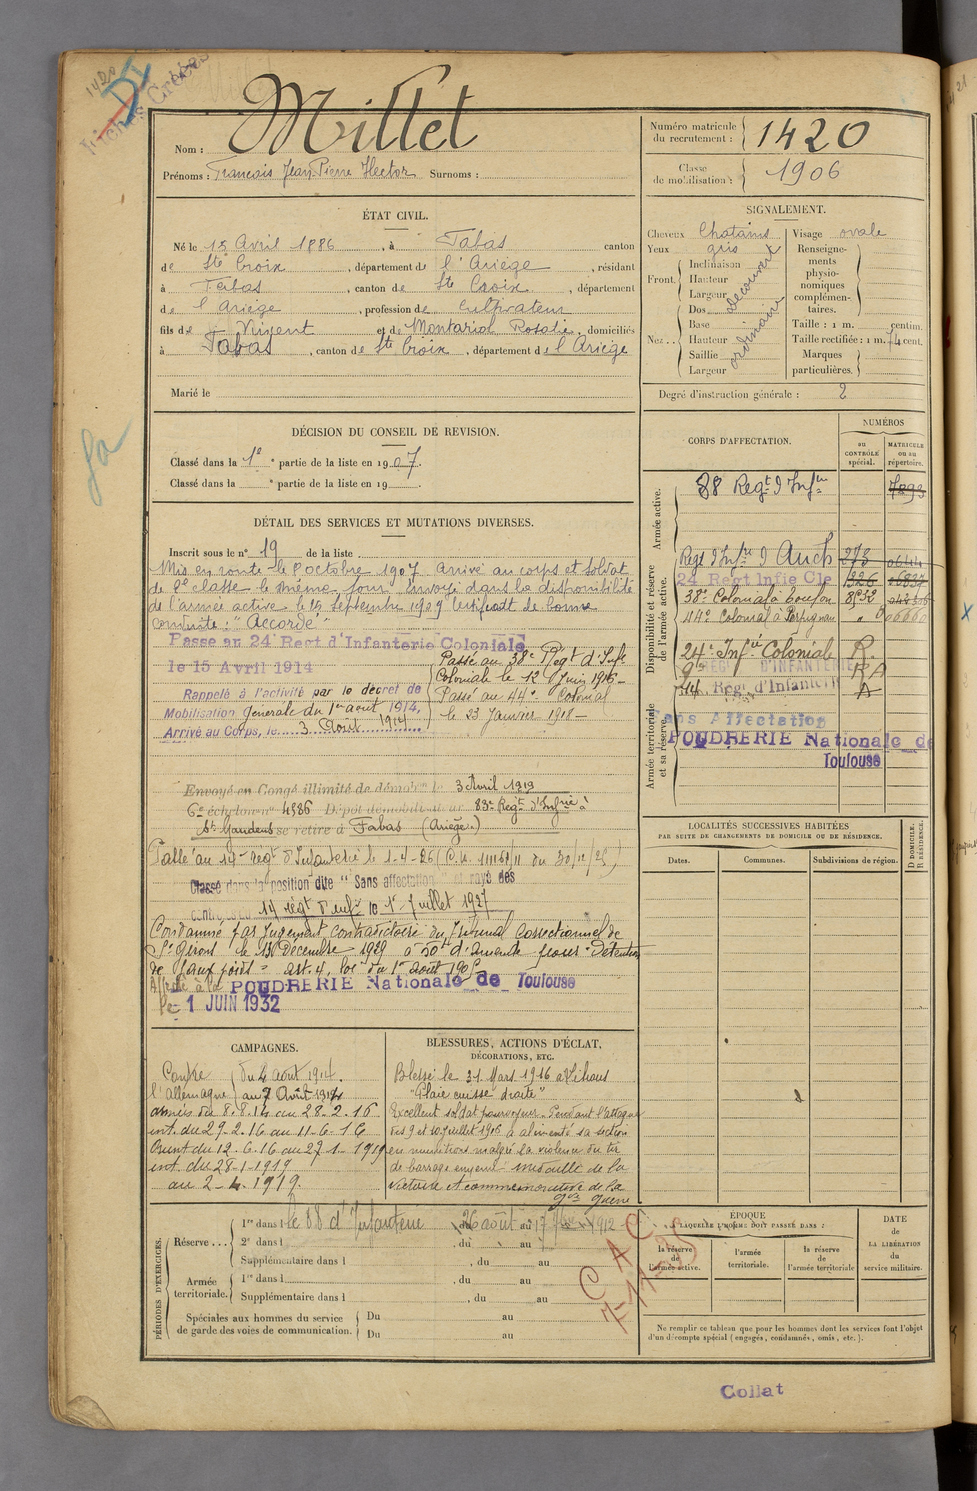 1420
Nom : Millet
Prénoms : François Jean Pierre Hector Surnoms :
Numéro matricule du recrutement : 1420
Classe de mobilisation : 1906
ÉTAT CIVIL.
Né le 15 Avril 1886, à Fabas canton
de Ste Croix, département de l'Ariège, résidant
à Fabas, canton de Ste Croix, département
de l'Ariège, profession de Cultivateur
fils de et de Montariol Rosalie, domiciliés
à Fabas, canton de Ste Croix, département de l'Ariège
Marié le
SIGNALEMENT.
Cheveux Chatains
Yeux gris
Front. Inclinaison
Hauteur
Largeur
découvert
Nez.. Dos
Base
Hauteur
Saillie
Largeur
ordinaire
Visage ovale
Renseignements physionomiques complémentaires.
Taille : 1 m. centim.
Taille rectifiée : 1 m. 74 cent.
Marques particulières.
Degré d'instruction générale : 2
DÉCISION DU CONSEIL DE REVISION.
Classé dans la 1e partie de la liste en 1907.
Classé dans la e partie de la liste en 19
DÉTAIL DES SERVICES ET MUTATIONS DIVERSES.
Inscrit sous le n° 19 de la liste
Mis en route le 8 octobre 1907 Arrivé au corps et soldat
de 2e classe le même jour. Envoyé dans la disponibilité
de l'armée active le 25 Septembre 1909 Certificat de bonne
conduite : "Accordé"
Passé au 24e Regt d'Infanterie Coloniale
le 15 Avril 1914
Rappelé à l'activité par le décret de
Mobilisation Générale du 1er août 1914,
Arrivé au Corps, le 3 Août 1914
Passé au 38e Régt d'Infie
Coloniale le 12 Juin 1916
Passé au 44e Colonial
le 23 Janvier 1918
Envoyé en Congé illimité de démobon le 3 Avril 1919
6e échelon n° 4886 Dépôt démobilisateur 83e Regt d'Infrie à
St Gaudens se retire à Fabas (Ariège)
Classé dans la position dite "Sans affectation" et rayé des
14 régt d'infie le 1er Juillet 1927
Condamné par Jugement contradictoire du Tribunal Correctionnel de
St Girons le 13 Décembre 1929 à 50f d'amende pour "Détention
de faux poids" art. 4, loi du 1er août 1905
Affecté à la POUDRERIE Nationale de Toulouse
le 1 JUIN 1932
CORPS D'AFFECTATION.
NUMÉROS
au contrôle spécial.
matricule ou au répertoire.
Armée active.
88 Regt d'Infie
Disponibilité et réserve de l'armée active.
Regt d'Infie d'Auch
24 Regt Infie Cle
38e Colonial à Toulon
44e Colonial à Perpignan
24e Infie Coloniale R.
RÉGT D'INFANTERIE R A
14 Régt d'Infanterie A
Armée territoriale et sa réserve.
Sans Affectation
POUDRERIE Nationale de
Toulouse
LOCALITÉS SUCCESSIVES HABITÉES
PAR SUITE DE CHANGEMENTS DE DOMICILE OU DE RÉSIDENCE.
Dates. Communes. Subdivisions de région. D DOMICILE. R RÉSIDENCE.
CAMPAGNES.
Contre l'Allemagne
du 4 août 1914.
au 7 Août 1914
armées du 8.8.14 au 28.2.16
int. du 29.2.16 au 11.6.16
Orient du 12.6.16 au 27.1.1919
int. du 28-1-1919
au 2-4-1919.
BLESSURES, ACTIONS D'ÉCLAT,
DÉCORATIONS, ETC.
Blessé le 31 Mars 1916
"Plaie cuisse droite"
Excellent soldat pourvoyeur. Pendant l'attaque
à alimenté sa section
en munitions malgré la violence du tir
de barrage ennemi. Médaille de la
Victoire et commémorative de la
Gde Guerre
PÉRIODES D'EXERCICES.
Réserve... 1re dans le 88 d'Infanterie du 26 août au 17 1912
2e dans l , du au
Supplémentaire dans l , du au
Armée territoriale. 1re dans l , du au
Supplémentaire dans l , du au
Spéciales aux hommes du service de garde des voies de communication. Du au
Du au
C A C
7-11-35
ÉPOQUE
À LAQUELLE L'HOMME DOIT PASSER DANS :
la réserve de l'armée active.
l'armée territoriale.
la réserve de l'armée territoriale
DATE DE LA LIBÉRATION du service militaire.
Ne remplir ce tableau que pour les hommes dont les services font l'objet
d'un décompte spécial (engagés, condamnés, omis, etc.).
Collat